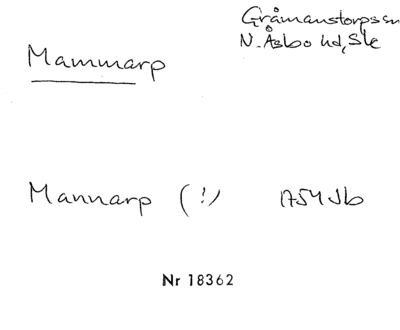 Gråmanstorps sn
N. Åsbo hd, Sk
Mammarp
Mannarp (!) 1754 Jb
Nr 18362